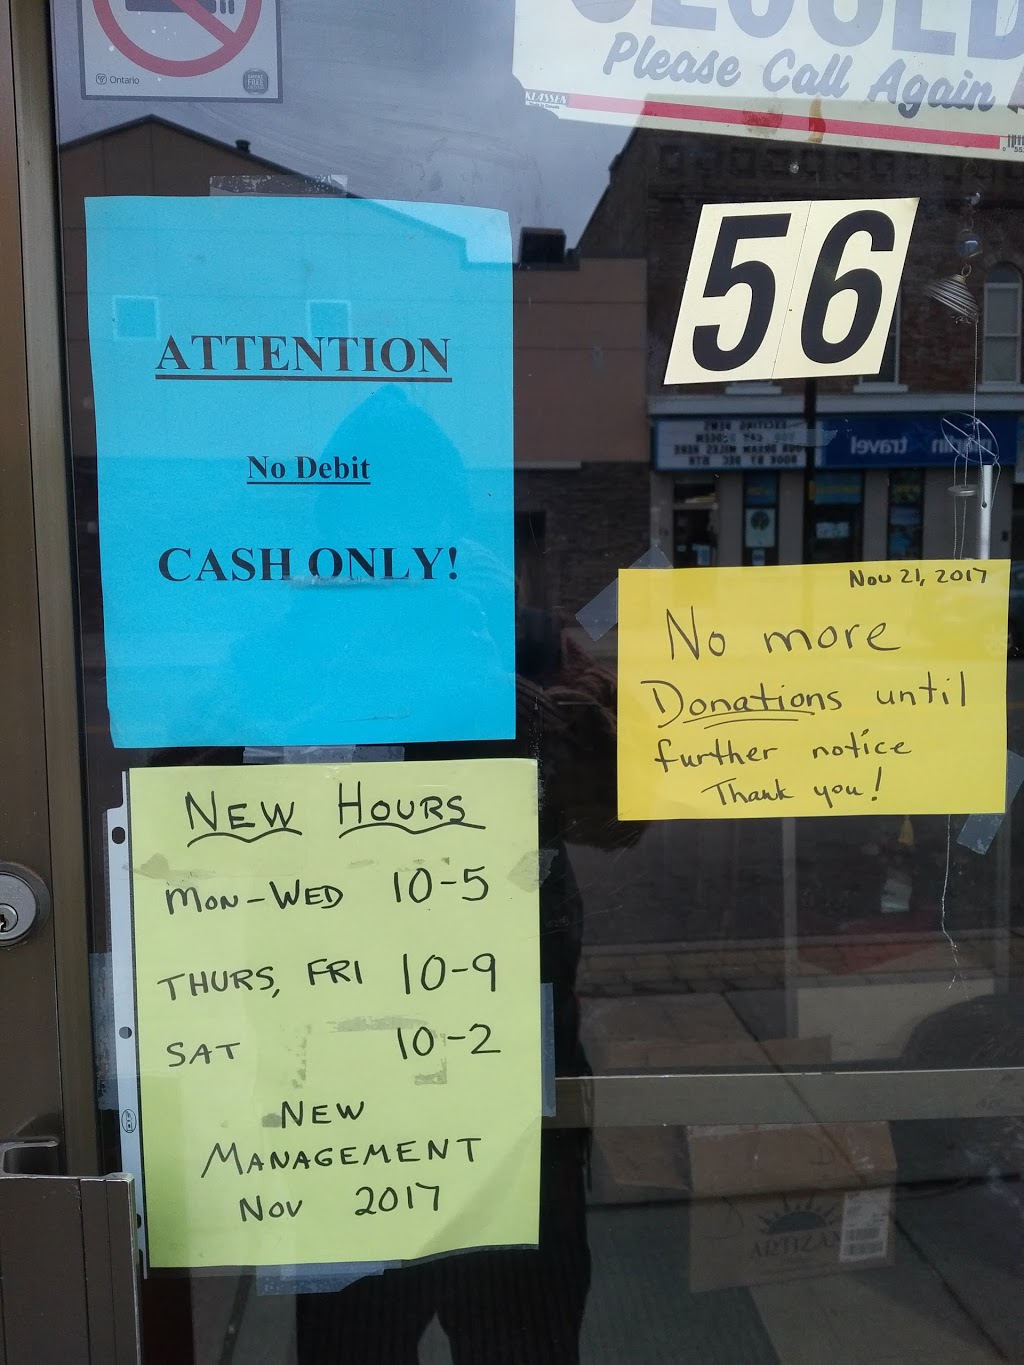 Ontario
CLOSED
Please Call Again
KLASSEN
56
ATTENTION
No Debit
CASH ONLY!
martin travel
EXCITING NEWS
BOOK BY DEC 8TH
Nov 21, 2017
No more
Donations until
further notice
Thank you!
NEW HOURS
MON-WED 10-5
THURS, FRI 10-9
SAT 10-2
NEW
MANAGEMENT
NOV 2017
ARTIZAN